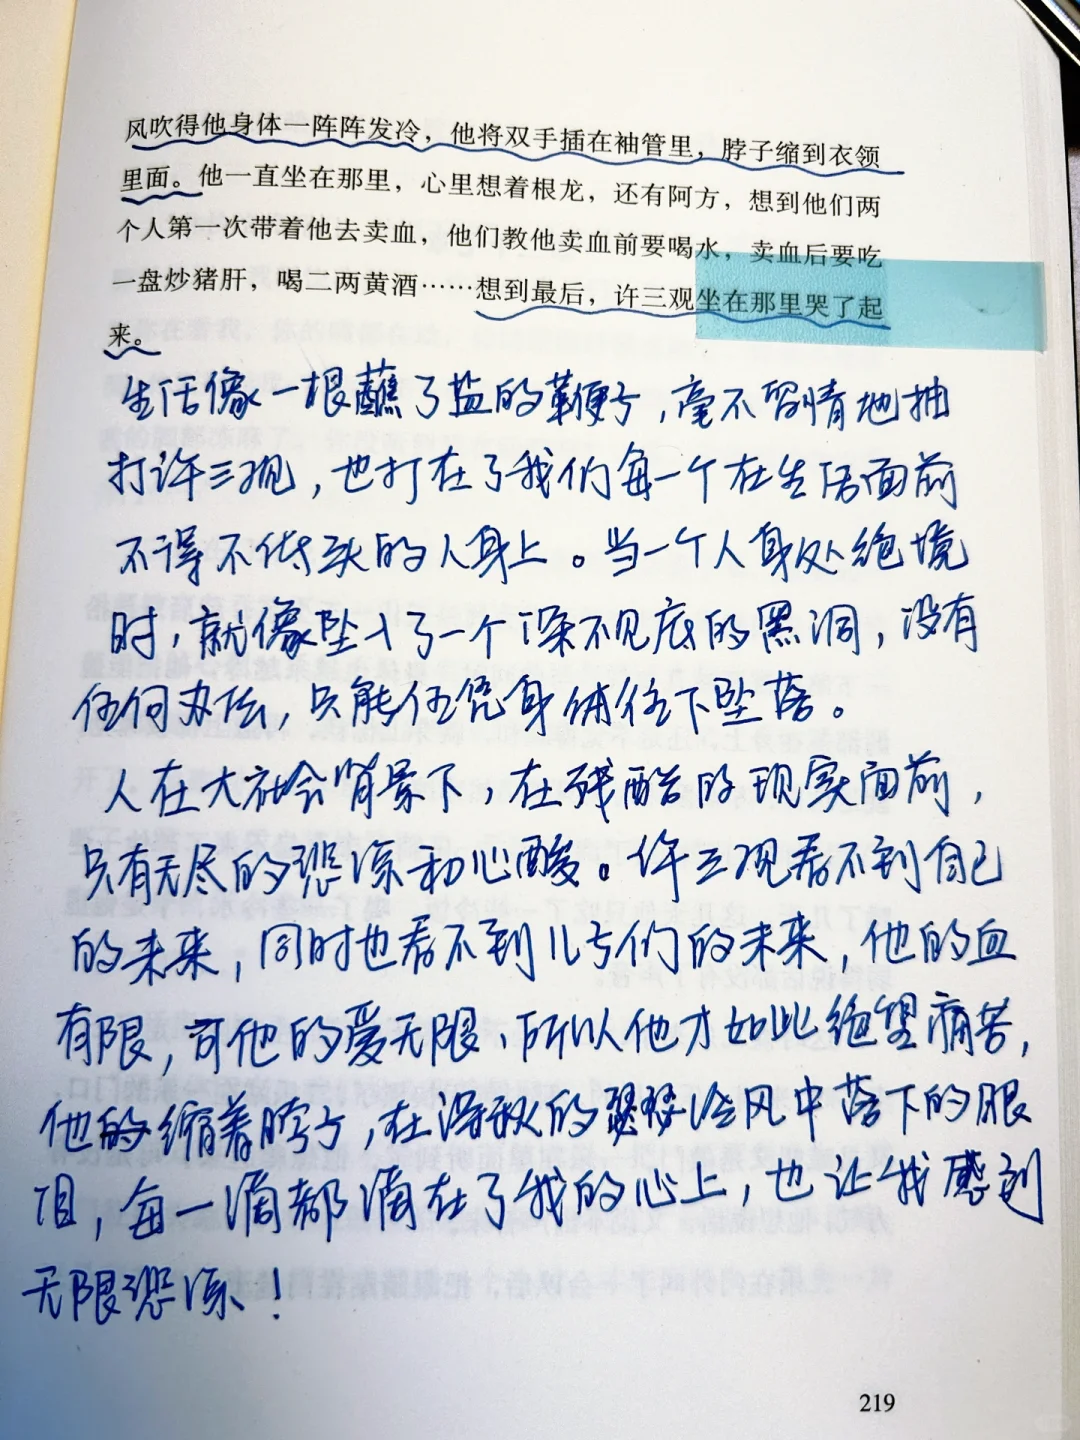 风吹得他身体一阵阵发冷，他将双手插在袖管里，脖子缩到衣领
里面。他一直坐在那里，心里想着根龙，还有阿方，想到他们两
个人第一次带着他去卖血，他们教他卖血前要喝水，卖血后要吃
一盘炒猪肝，喝二两黄酒……想到最后，许三观坐在那里哭了起
来。
生活像一根蘸了盐的鞭子，毫不留情地抽
打许三观，也打在了我们每一个在生活面前
不得不低头的人身上。当一个人身处绝境
时，就像坠入了一个深不见底的黑洞，没有
任何办法，只能任凭身体往下坠落。
人在大社会背景下，在残酷的现实面前，
只有无尽的悲凉和心酸。许三观看不到自己
的未来，同时也看不到儿子们的未来，他的血
有限，可他的爱无限、所以他才如此绝望痛苦，
他的缩着脖子，在深秋的瑟瑟冷风中落下的眼
泪，每一滴都滴在了我的心上，也让我感到
无限悲凉！
219